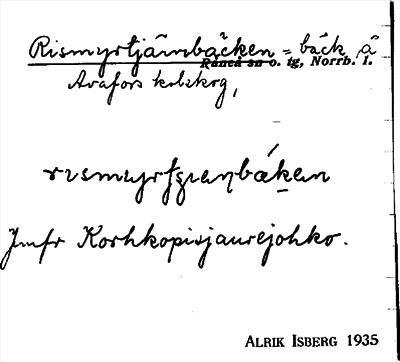 Rismyrtjärnbäcken = bäck å
Råneå sn o. tg, Norrb. l.
Avafors kolskog,
Jmfr Korhkopisjaurejohko.
ALRIK ISBERG 1935